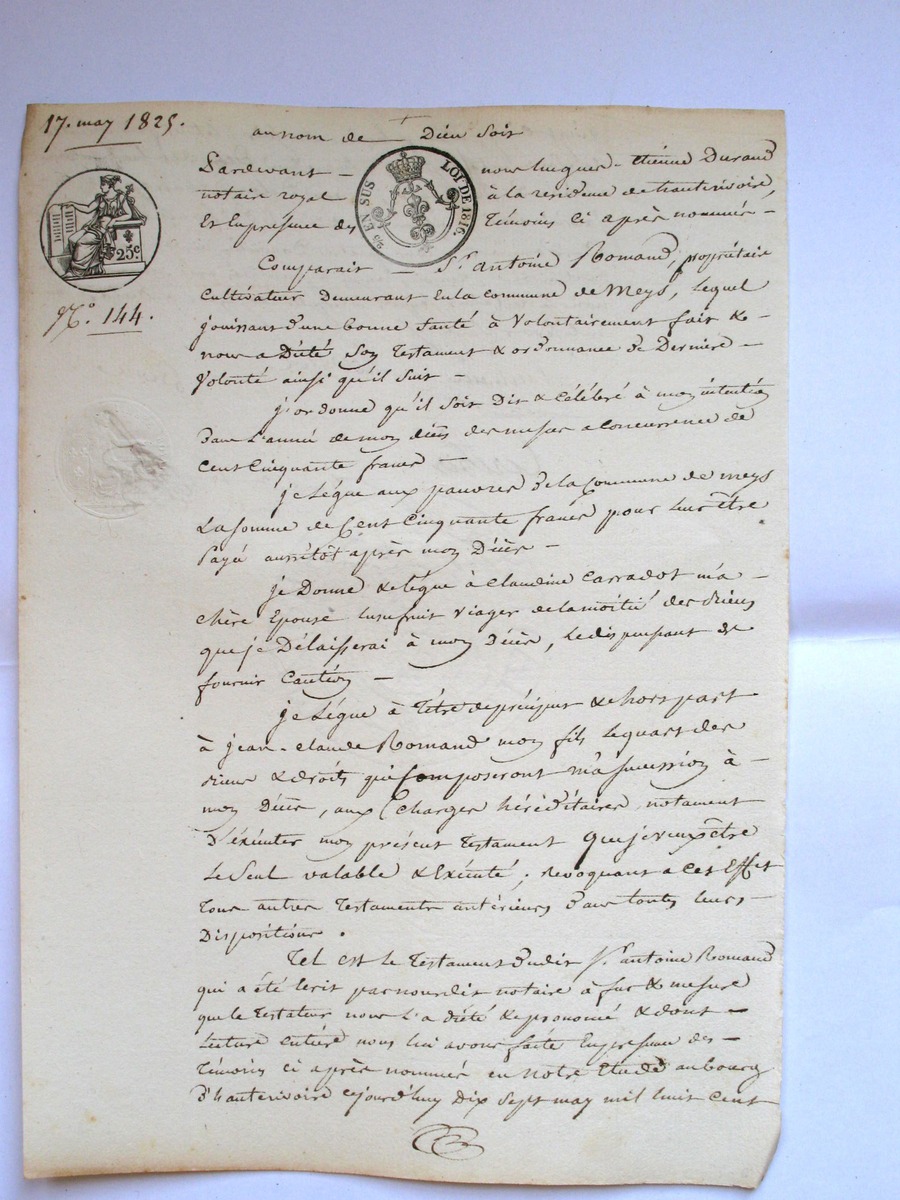 17. may 1825.
au nom de Dieu soit
Pardevant nous Hugues-étiénne Durand
notaire royal à la residence de hauterivoire,
Et En présence des Témoins ci après nommés -
20 EN SUS LOI DE 1816.
25c
N.o 144.
Comparait - Sr. antoine Romand, propriétaire
Cultivateur Demeurant En la Commune de Meys, Lequel
jouissant d'une bonne santé à Volontairement fait &
nous a Dicté son Testament & ordonnance De Derniere -
Volonté ainsi qu'il suit -
j'ordonne qu'il soit Dit & Célébré à mon intention
Dans L'année de mon décès des messes a Concurrence de
Cent Cinquante francs -
je Légue aux pauvres De la Commune de meys
La Somme de Cent Cinquante francs pour Leur être
Payé aussitôt après mon Décès -
je Donne & Légue à Claudine Carradot ma -
chère Epouse Lusufruit Viager de la moitié des Biens
que je Délaisserai à mon Décès, Le dispensant de
fournir Caution -
je Légue à Titre de préciput & hors part
à jean-Claude Romand mon fils Le quart des
Biens & droits qui Composeront ma succession à
mon Décès, aux Charges héréditaires, notament
D'éxécuter mon présent Testament que je veux être
Le Seul valable & Exécuté; révoquant a cet Effet
Tous autres Testaments antérieurs Dans toutes Leurs
Dispositions.
Tel est le Testament Dudit Sr. antoine Romand
qui a été Ecrit par nous dit notaire à fur & mesure
que le Testateur nous L'a dicté & prononcé & dont -
Lecture entière nous lui avons faite En présence des -
Témoins ci après nommés en notre Etude au bourg
D'hauterivoire cejourd'huy dix sept may mil huit Cent